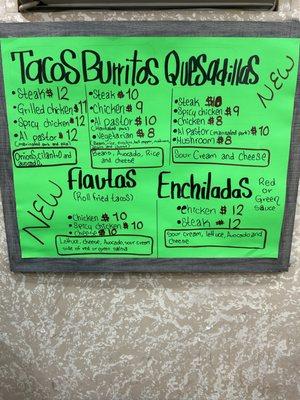 Tacos
• Steak $ 12
• Grilled chicken $ 11
• Spicy chicken $ 12
• Al pastor $ 12
(marinated pork and
Onions, cilantro and
avocado
Burritos
• Steak $ 10
• Chicken $ 9
• Al pastor $ 10
(marinated pork)
• Vegetarian $ 8
Beans, Avocado, Rice
and cheese
Quesadillas
NEW
• Steak $10
• Spicy chicken $ 9
• Chicken $ 8
• Al Pastor (marinated pork) $ 10
• Mushroom $ 8
Sour Cream and Cheese
NEW
Flautas
(Roll fried tacos)
• Chicken $ 10
• Spicy chicken $ 10
• Cheese $ 10
Lettuce, cheese, Avocado, sour cream
side of red or green salsa
Enchiladas
Red
or
Green
Sauce
• Chicken $ 12
• Steak $ 12
Sour cream, lettuce, Avocado and
Cheese